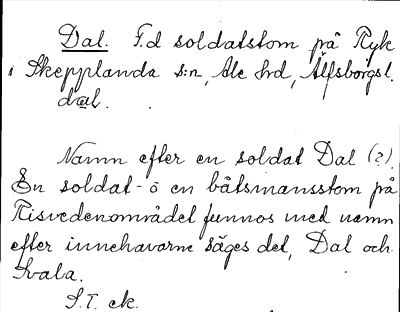 Dal. F.d soldatstom på Ryk
i Skepplanda s:n, Ale hrd, Älfsborgsl.
dal.
Namn efter en soldat Dal (?).
En soldat- o en båtsmansstom på
Risvedenområdet funnos med namn
efter innehavarne säges det, Dal och
Svala.
S.T. ek.